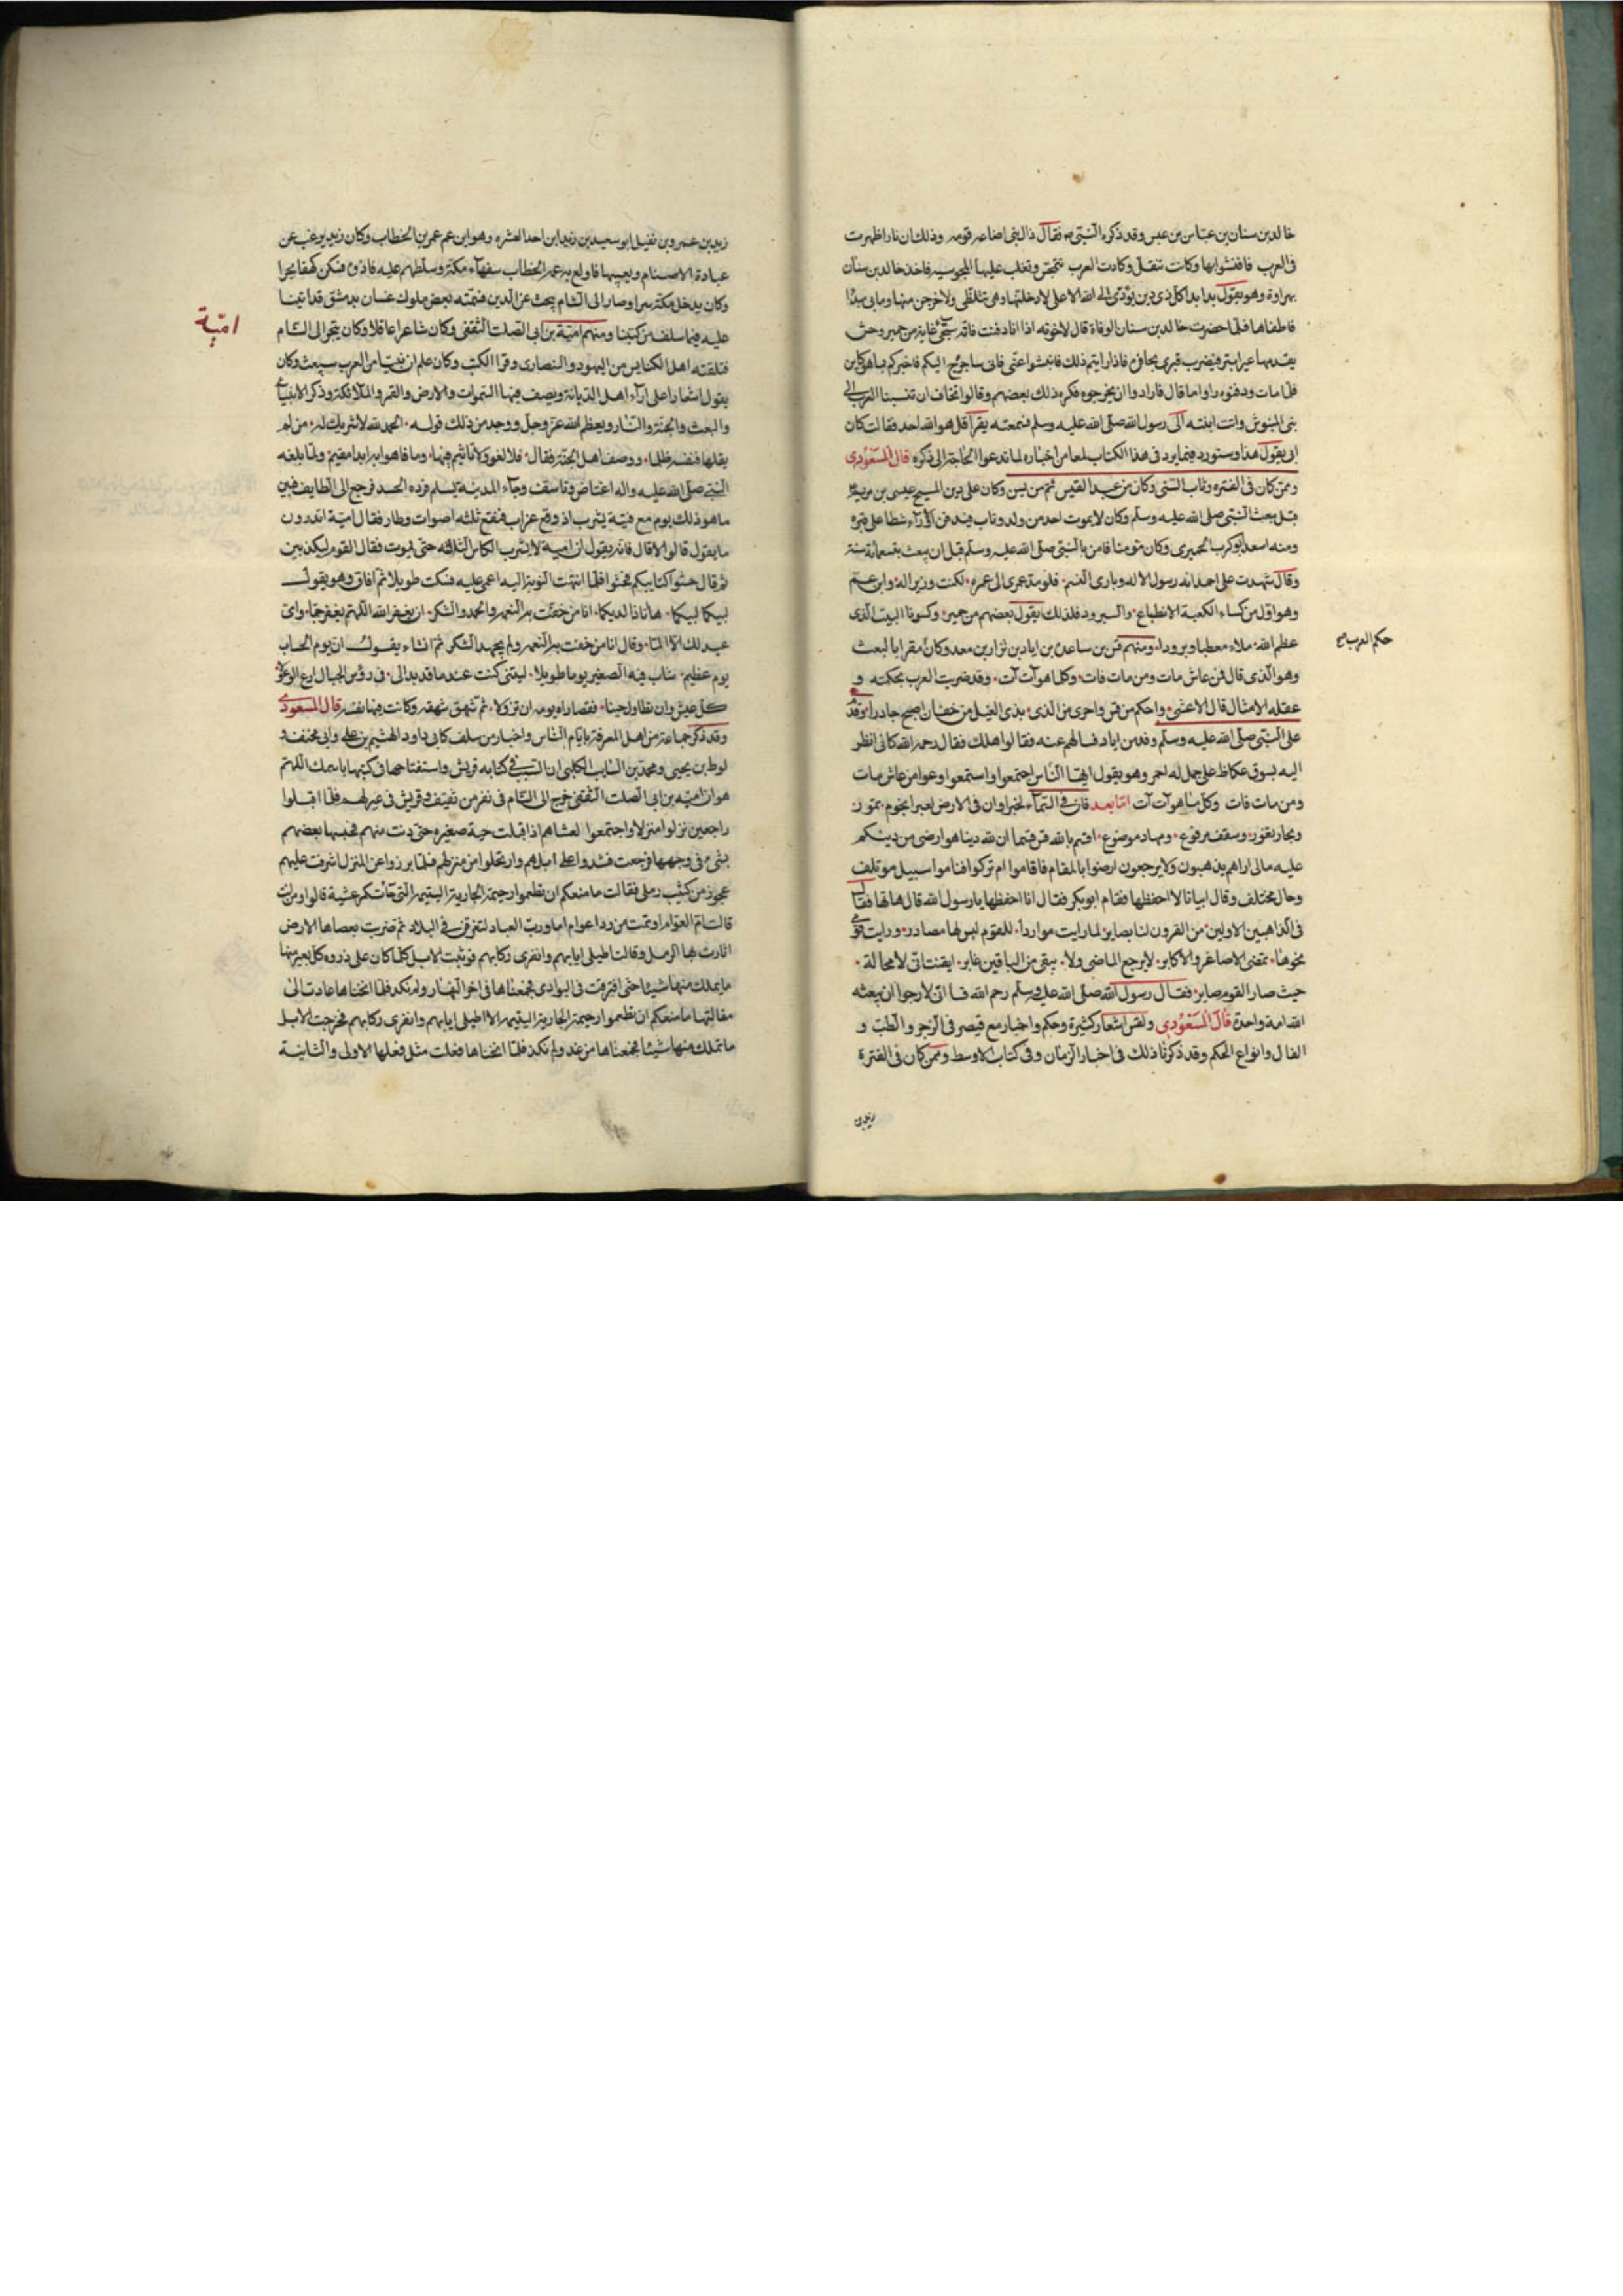 خالد بن سنان بن عباس بن عبس وقد ذكره النبى فقال ذاك نبى اضاعه قومه وذلك ان نارا ظهرت
فى العرب فافتتنوا بها وكانت تنتقل وكادت العرب تتمجس وتغلب عليها المجوسيه فاخذ خالد بن سنان
بهراوة وهو يقول بدا بدا كل ذى دين يؤدى الى الله الاعلى لادخلنها وهى تتلظى ولاخرجن منها
فاطفاها فلما حضرت خالد بن سنان الوفاة قال لاخوته اذا انا دفنت فانه ستجئ عانة من حمير وحش
يقدمها عير ابتر فيضرب قبرى بحافره فاذا رايتم ذلك فانبشوا عنى فانى ساخرج اليكم فاخبركم بما هو كاين
فلما مات ودفنوه راوا ما قال فارادوا ان يخرجوه فكره ذلك بعضهم وقالوا نخاف ان تنسبنا العرب الى
واتت ابنته الى رسول الله صلى الله عليه وسلم فسمعته يقرا قل هو الله احد فقالت كان
ابى يقول هذا وسنورد فيما يرد فى هذا الكتاب لمعا من اخباره لما تدعوا الحاجة الى ذكره قال المسعودى
وممن كان فى الفتره رئاب الشنى وكان من عبد القيس ثم من شن وكان على دين المسيح عيسى بن مريم
قبل مبعث النبى صلى الله عليه وسلم وكان لا يموت احد من ولد رئاب فيدفن الا راء شطا على قبره
ومنه اسعد ابو كرب الحميرى وكان مومنا قامن بالنبى صلى الله عليه وسلم قبل ان يبعث بتسعمائة سنة
وقال شهدت على احمد انه رسول الاله وبارى النسم فلو مد عمرى الى عمره لكنت وزير اله وابن عم
وهو اول من كساء الكعبة الانطباع والبرود فلذلك يقول بعضهم من حمير وكسونا البيت الذى
عظم الله ملاء معطبا وبرودا ومنهم قس بن ساعدة بن اياد بن نزار بن معد وكان مقرا بالبعث
حكم العرب
وهو الذى قال من عاش مات ومن مات فات وكل ما هو آت آت وقد ضربت العرب بحكمته و
عقله الامثال قال الاعشى واحكم من قس واجرى من الذى بذى الغيل من خفان اصبح خادرا وقدم
على النبى صلى الله عليه وسلم وفد من اياد فسالهم عنه فقالوا هلك فقال رحمه الله كانى انظر
اليه بسوق عكاظ على جمل له احمر وهو يقول ايها الناس اجتمعوا واستمعوا وعوا من عاش مات
ومن مات فات وكل ما هو آت آت اما بعد فان فى السماء لخبرا وان فى الارض لعبرا نجوم تمور
وبحار تغور وسقف مرفوع ومهاد موضوع اقسم بالله قس قسما ان لله دينا هو ارضى من دينكم
عليه مالى اراهم يذهبون ولا يرجعون ارضوا بالمقام فاقاموا ام تركوا فناموا سبيل موتلف
وحال مختلف وقال ابياتا لا احفظها فقام ابو بكر فقال انا احفظها يا رسول الله قال هاتها فقال
فى الذاهبين الاولين من القرون لنا بصاير لما رايت مواردا للقوم ليس لها مصادر ورايت قومى
نحوها تمضى الاصاغر والاكابر لا يرجع الماضى ولا يبقى من الباقين غابر ايقنت انى لا محالة
حيث صار القوم صاير فقال رسول الله صلى الله عليه وسلم رحم الله قسا انى لارجوا ان يبعثه
الله امة واحدة قال المسعودى ولقس اشعار كثيرة وحكم واخبار مع قيصر فى الزجر والطب و
الفال وانواع الحكم وقد ذكرنا ذلك فى اخبار الزمان وفى كتاب الاوسط وممن كان فى الفترة
زيد بن
زيد بن عمرو بن نفيل ابو سعيد بن زيد ابن احد العشره وهو ابن عم عمر بن الخطاب وكان زيد يرغب عن
عبادة الاصنام ويعيبها فاولع به عمر الخطاب سفهاء مكة وسلطهم عليه فاذوه فسكن كهفا بحرا
وكان يدخل مكة سرا وصار الى الشام يبحث عن الدين فسمته بعض ملوك غسان بدمشق قد اتينا
عليه فيما سلف من كتبنا ومنهم امية بن ابى الصلت الثقفى وكان شاعرا عاقلا وكان يتجر الى الشام
امية
فتلقته اهل الكنايس من اليهود والنصارى وقرا الكتب وكان علم ان نبيا من العرب سيبعث وكان
يقول اشعارا على آراء اهل الديانة ويصف فيها السموات والارض والقمر والملائكة وذكر الانبياء
والبعث والجنة والنار ويعظم الله عز وجل ووحد من ذلك قوله الحمد لله لا شريك له من لم
يقلها فنفسه ظلما ووصف اهل الجنة فقال فلا لغو ولا تاثيم فيها وما فاهوا به ابدا مقيم ولما بلغه
النبى صلى الله عليه واله اغتاض وتاسف وجاء المدينة ليسلم فرده الحسد فرجع الى الطايف فبين
ما هو ذلك يوم مع فتية يشرب اذ وقع غراب فنعق ثلثه اصوات وطار فقال امية اتدرون
ما يقول قالوا لا قال فانه يقول ان امية لا يشرب الكاس الثالثه حتى يموت فقال القوم ليكذبن
ثم قال حثوا كنابيكم فحثوا فلما انتهت النوبة اليه اغمى عليه فسكت طويلا ثم افاق وهو يقول
لبيكما لبيكما هانا ذا لديكما انا من حفت به النعمه والحمد والشكر ان يغفر الله اللهم تغفر جما واى
عبد لك لا الما وقال انا من حفت به النعمه ولم يجهد الشكر ثم انشاء يقول ان يوم الحساب
يوم عظيم شاب فيه الصغير يوما طويلا ليتنى كنت عند ما قد بدالى فى رؤس الجبال ارع الوعولا
كل عيش وان تطاول حينا فقصاراه يومه ان تزولا ثم شهق شهقه وكانت فيها نفسه قال المسعودى
وقد ذكر جماعة من اهل المعرفة بايام الناس واخبار من سلف كابى داود الهشيم بن على وابى مخنف و
لوط بن يحيى ومحمد بن السايب الكلبى ان السبب فى كتابه قريش واستفتاحها فى كتبها باسمك اللهم
هو ان امية بن ابى الصلت الثقفى خرج الى الشام فى نفر من ثقيف وقريش فى عير لهم فلما اقبلوا
راجعين نزلوا منزلا واجتمعوا لعشاهم اذ اقبلت حية صغيره حتى دنت منهم فحصبها بعضهم
بشئ فى وجهها فرجعت فشدوا على ابلهم وارتحلوا من منزلهم فلما برزوا عن المنزل اشرفت عليهم
عجوز من كثيب رملى فقالت ما منعكم ان تطعموا رحيمة الجارية اليتيمة التى جاتكم عشية قالوا ومن انت
قالت ام العوام اوتمت من رد اعوام اما ورب العباد لتفرقن فى البلاد ثم ضربت بعصاها الارض
اثارت بها الرمل وقالت اطيلى ايابهم وانفرى ركابهم فوثبت الابل كلما كان على ذروه كل بعير منها
ما يملك منها شيئا حتى افترقت فى البوادى فجمعناها فى اخر النهار ولم نكد فلما انخناها عادت الى
مقالتها ما منعكم ان تطعموا رحيمة الجارية اليتيمة الا اطيلى ايابهم وانفرى ركابهم فخرجت الابل
ما نملك منها شيئا فجمعناها من غد ولم نكد فلما انخناها فعلت مثل فعلها الاولى والثانية